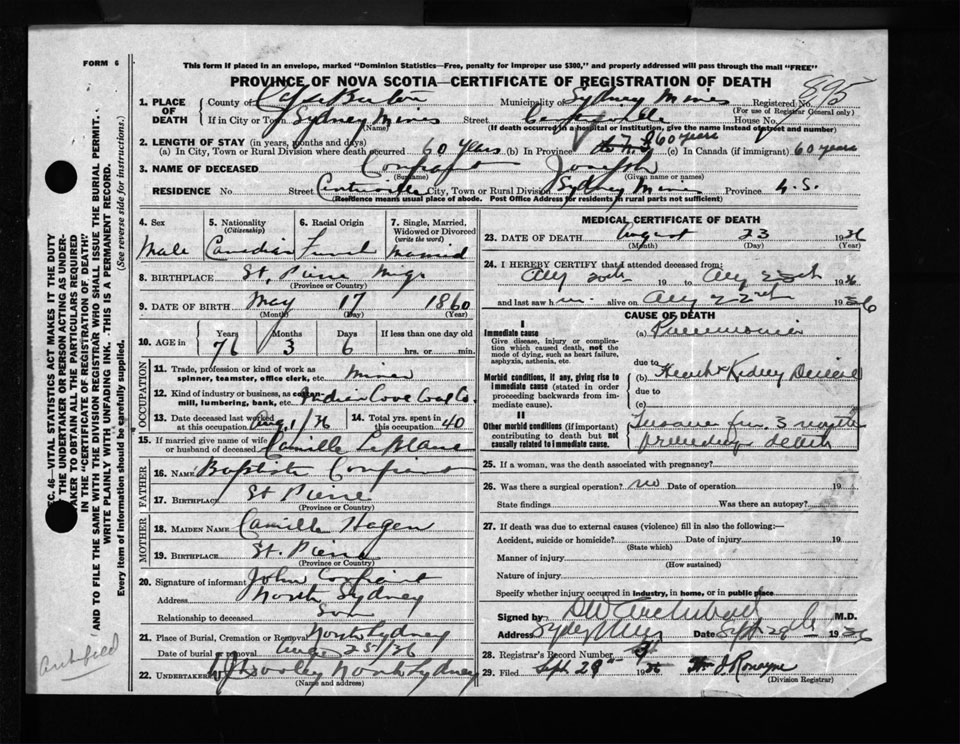 FORM 6
This form if placed in an envelope, marked "Dominion Statistics—Free, penalty for improper use $300," and properly addressed will pass through the mail "FREE"
PROVINCE OF NOVA SCOTIA—CERTIFICATE OF REGISTRATION OF DEATH
895
1. PLACE OF DEATH County of Cape Breton Municipality Sydney Mines Registered No.
(For use of Registrar General only)
If in City or Town Sydney Mines Street House No.
(Name) (If death occurred in a hospital or institution, give the name instead of street and number)
2. LENGTH OF STAY (in years, months and days)
(a) In City, Town or Rural Division where death occurred 60 years (b) In Province 60 years (c) In Canada (if immigrant) 60 years
3. NAME OF DECEASED Joseph
(Surname) (Given name or names)
RESIDENCE No. Street City, Town or Rural Division Sydney Mines Province N.S.
(Residence means usual place of abode. Post Office Address for residents in rural parts not sufficient)
4. Sex
Male
5. Nationality
(Citizenship)
Canadian
6. Racial Origin
French
7. Single, Married, Widowed or Divorced
(write the word)
Married
8. BIRTHPLACE St. Pierre Miq.
(Province or Country)
9. DATE OF BIRTH May 17 1860
(Month) (Day) (Year)
10. AGE in Years Months Days If less than one day old
76 3 6 hrs. or min.
OCCUPATION
11. Trade, profession or kind of work as spinner, teamster, office clerk, etc. miner
12. Kind of industry or business, as cotton-mill, lumbering, bank, etc. Indian Cove Coal Co
13. Date deceased last worked at this occupation Aug 1/36
14. Total yrs. spent in this occupation 40
15. If married give name of wife or husband of deceased Camille LeBlanc
FATHER
16. NAME Baptiste
17. BIRTHPLACE St Pierre
(Province or Country)
MOTHER
18. MAIDEN NAME Camille Hagen
19. BIRTHPLACE St. Pierre
(Province or Country)
20. Signature of informant John
Address North Sydney
Relationship to deceased Son
21. Place of Burial, Cremation or Removal North Sydney
Date of burial or removal Aug 25/36
22. UNDERTAKER North Sydney
(Name and address)
MEDICAL CERTIFICATE OF DEATH
23. DATE OF DEATH August 23 1936
(Month) (Day) (Year)
24. I HEREBY CERTIFY that I attended deceased from:
Aug 20th 19 to Aug 23rd 1936
and last saw him alive on Aug 22nd 1936
CAUSE OF DEATH
I
Immediate cause
Give disease, injury or complication which caused death, not the mode of dying, such as heart failure, asphyxia, asthenia, etc.
(a) Pneumonia
due to
Morbid conditions, if any, giving rise to immediate cause (stated in order proceeding backwards from immediate cause).
(b) Heart & Kidney Disease
due to
(c)
II
Other morbid conditions (if important) contributing to death but not causally related to immediate cause.
Insane for 3 months preceding death
25. If a woman, was the death associated with pregnancy?
26. Was there a surgical operation? no Date of operation 19
State findings Was there an autopsy?
27. If death was due to external causes (violence) fill in also the following:—
Accident, suicide or homicide? Date of injury 19
(State which)
Manner of injury
(How sustained)
Nature of injury
Specify whether injury occurred in Industry, in home, or in public place
Signed by D W Archibald M.D.
Address Sydney Mines Date Sept 29th 1936
28. Registrar's Record Number
29. Filed Sept 29th 1936
(Division Registrar)
SEC. 46—VITAL STATISTICS ACT MAKES IT THE DUTY OF THE UNDERTAKER OR PERSON ACTING AS UNDERTAKER TO OBTAIN ALL THE PARTICULARS REQUIRED IN THE "CERTIFICATE OF REGISTRATION OF DEATH" AND TO FILE THE SAME WITH THE DIVISION REGISTRAR WHO SHALL ISSUE THE BURIAL PERMIT.
WRITE PLAINLY WITH UNFADING INK. THIS IS A PERMANENT RECORD.
Every item of Information should be carefully supplied. (See reverse side for instructions.)